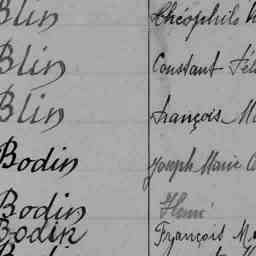 Blin Théophile
Blin Constant
Blin François
Bodin Joseph Marie
Bodin Henri
Bodin François